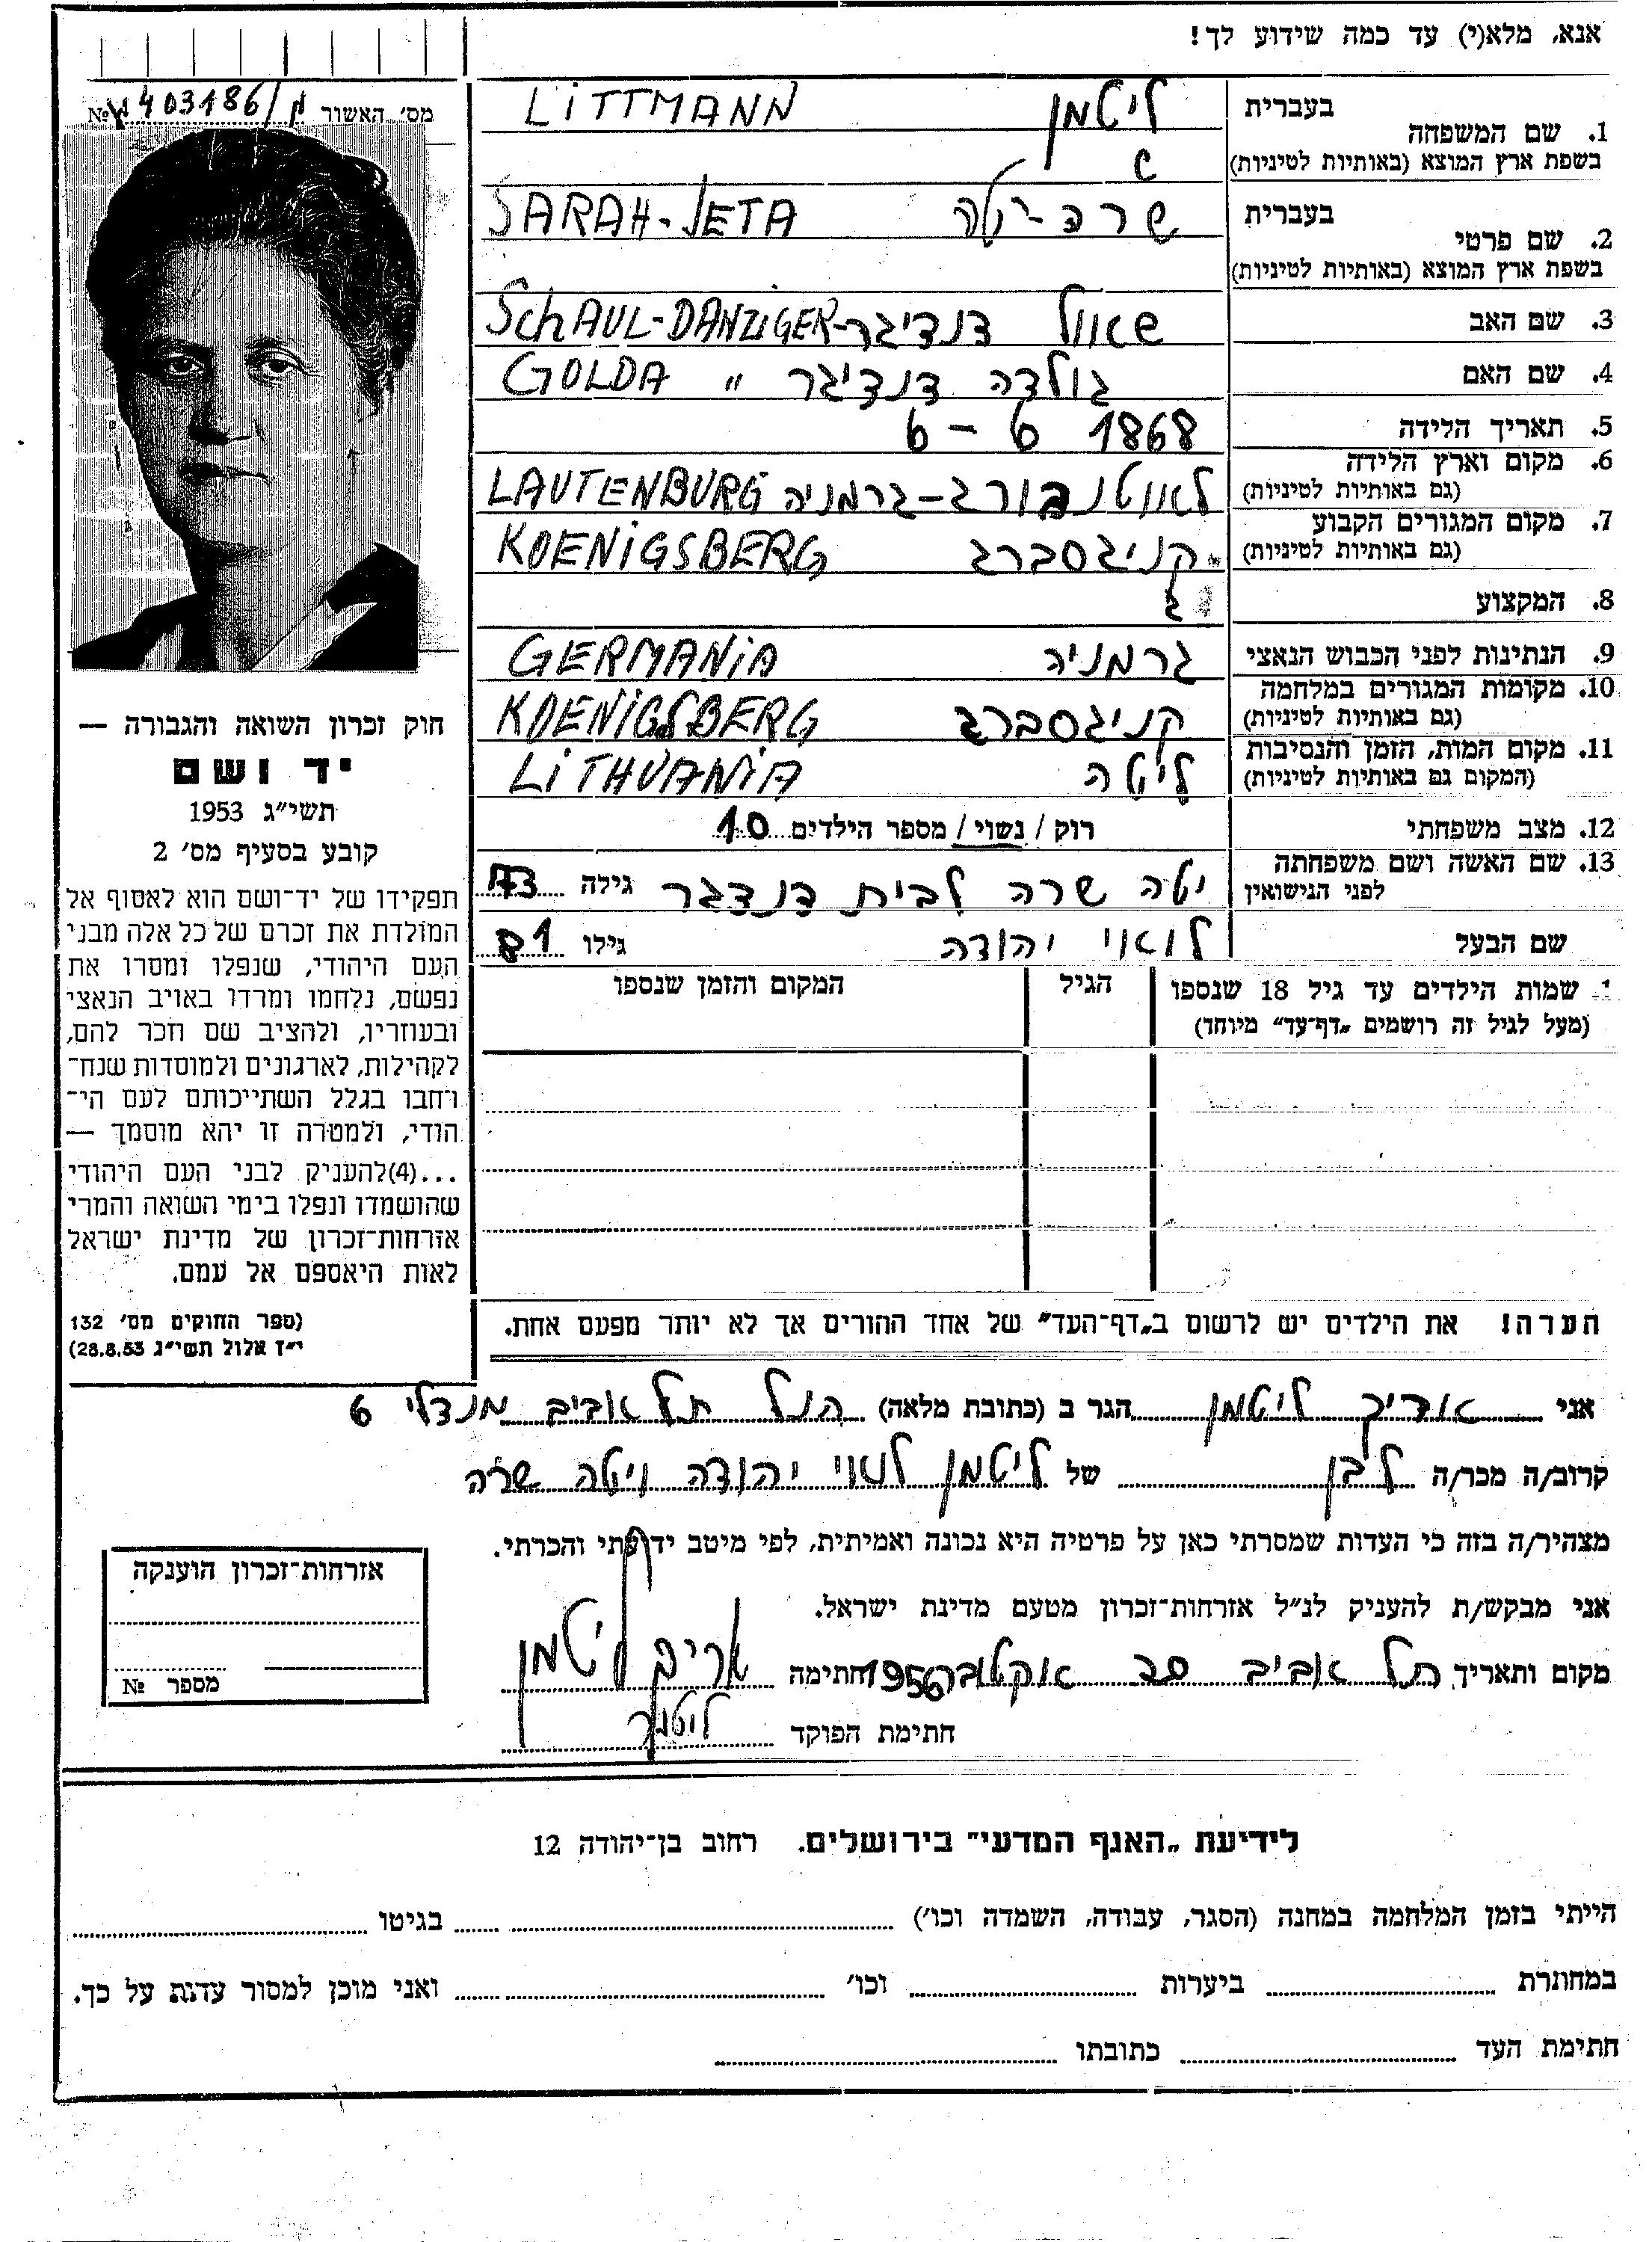 אנא, מלא(י) עד כמה שידוע לך!
מס׳ האשור
№ 403186/
בעברית
1. שם המשפחה
בשפת ארץ המוצא (באותיות לטיניות)
ליטמן LiTTMANN
בעברית
2. שם פרטי
בשפת ארץ המוצא (באותיות לטיניות)
שרה-יטה SARAH-JETA
3. שם האב שאול דנדיגר-SchAUL-DANZiGER
4. שם האם גולדה דנדיגר " GOLDA
5. תאריך הלידה 6 - 6 1868
6. מקום וארץ הלידה
(גם באותיות לטיניות)
לאוטנבורג-גרמניה LAUTENBURG
7. מקום המגורים הקבוע
(גם באותיות לטיניות)
קניגסברג KOENiGSBERG
8. המקצוע
9. הנתינות לפני הכבוש הנאצי גרמניה GERMANiA
10. מקומות המגורים במלחמה
(גם באותיות לטיניות)
קניגסברג KOENiGSBERG
11. מקום המות, הזמן והנסיבות
(המקום גם באותיות לטיניות)
ליטה LiTHUANiA
12. מצב משפחתי רוק / נשוי / מספר הילדים 10
13. שם האשה ושם משפחתה
לפני הנישואין
יטה שרה לבית דנדגר גילה 73
שם הבעל לואוי יהודה גילו 81
שמות הילדים עד גיל 18 שנספו
(מעל לגיל זה רושמים „דף־עד" מיוחד)
הגיל
המקום והזמן שנספו
חוק זכרון השואה והגבורה —
יד ושם
תשי״ג 1953
קובע בסעיף מס׳ 2
תפקידו של יד־ושם הוא לאסוף אל
המולדת את זכרם של כל אלה מבני
העם היהודי, שנפלו ומסרו את
נפשם, נלחמו ומרדו באויב הנאצי
ובעוזריו, ולהציב שם וזכר להם,
לקהילות, לארגונים ולמוסדות שנח־
רחבו בגלל השתייכותם לעם הי־
הודי, ולמטרה זו יהא מוסמך —
...(4)להעניק לבני העם היהודי
שהושמדו ונפלו בימי השואה והמרי
אזרחות־זכרון של מדינת ישראל
לאות היאספם אל עמם.
(ספר החוקים מס׳ 132
י״ז אלול תשי״ג 28.8.53)
הערה! את הילדים יש לרשום ב„דף־העד" של אחד ההורים אך לא יותר מפעם אחת.
אני אריך ליטמן הגר ב (כתובת מלאה) תל אביב מנדלי 6
קרוב/ה מכר/ה בן של ליטמן לואוי יהודה ויטה שרה
מצהיר/ה בזה כי העדות שמסרתי כאן על פרטיה היא נכונה ואמיתית, לפי מיטב ידיעתי והכרתי.
אני מבקש/ת להעניק לנ״ל אזרחות־זכרון מטעם מדינת ישראל.
מקום ותאריך תל אביב אוקטובר 1956 חתימה אריך ליטמן
חתימת הפוקד
אזרחות־זכרון הוענקה
מספר №
לידיעת „האגף המדעי" בירושלים. רחוב בן־יהודה 12
הייתי בזמן המלחמה במחנה (הסגר, עבודה, השמדה וכו׳) בגיטו
במחתרת ביערות וכו׳ ואני מוכן למסור עדות על כך.
חתימת העד כתובתו